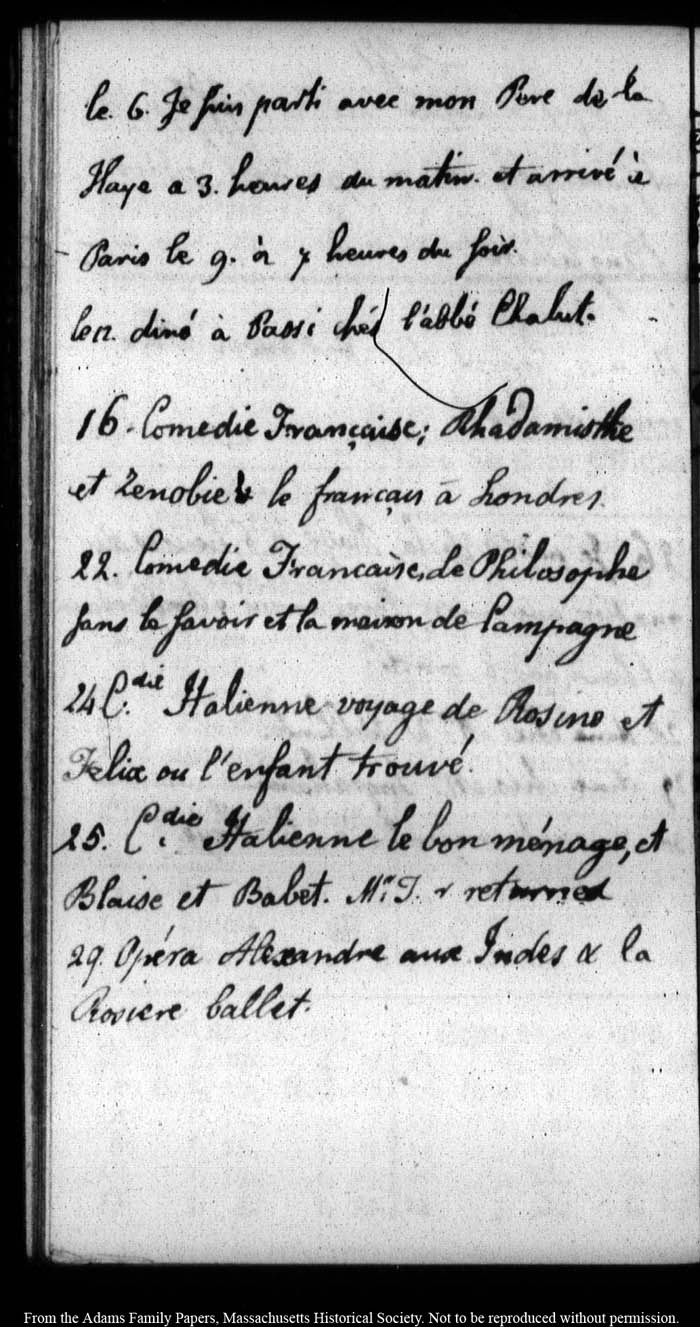 le. 6. Je suis parti avec mon Pere de la
Haye a 3. heures du matin. et arrivé à
Paris le 9. à 7 heures du soir.
le 12. diné à Passi chés l'abbé Chalut.
16. Comedie Française; Rhadamisthe
et Zenobie & le français à Londres.
22. Comedie Francaise, le Philosophe
sans le savoir et la maison de Campagne
24 C.die Italienne voyage de Rosine et
Felix ou l'enfant trouvé.
25. C.die Italienne le bon ménage, et
Blaise et Babet. Mr. J. r returned
29. Opéra Alexandre aux Indes & la
Rosiere ballet.
From the Adams Family Papers, Massachusetts Historical Society. Not to be reproduced without permission.